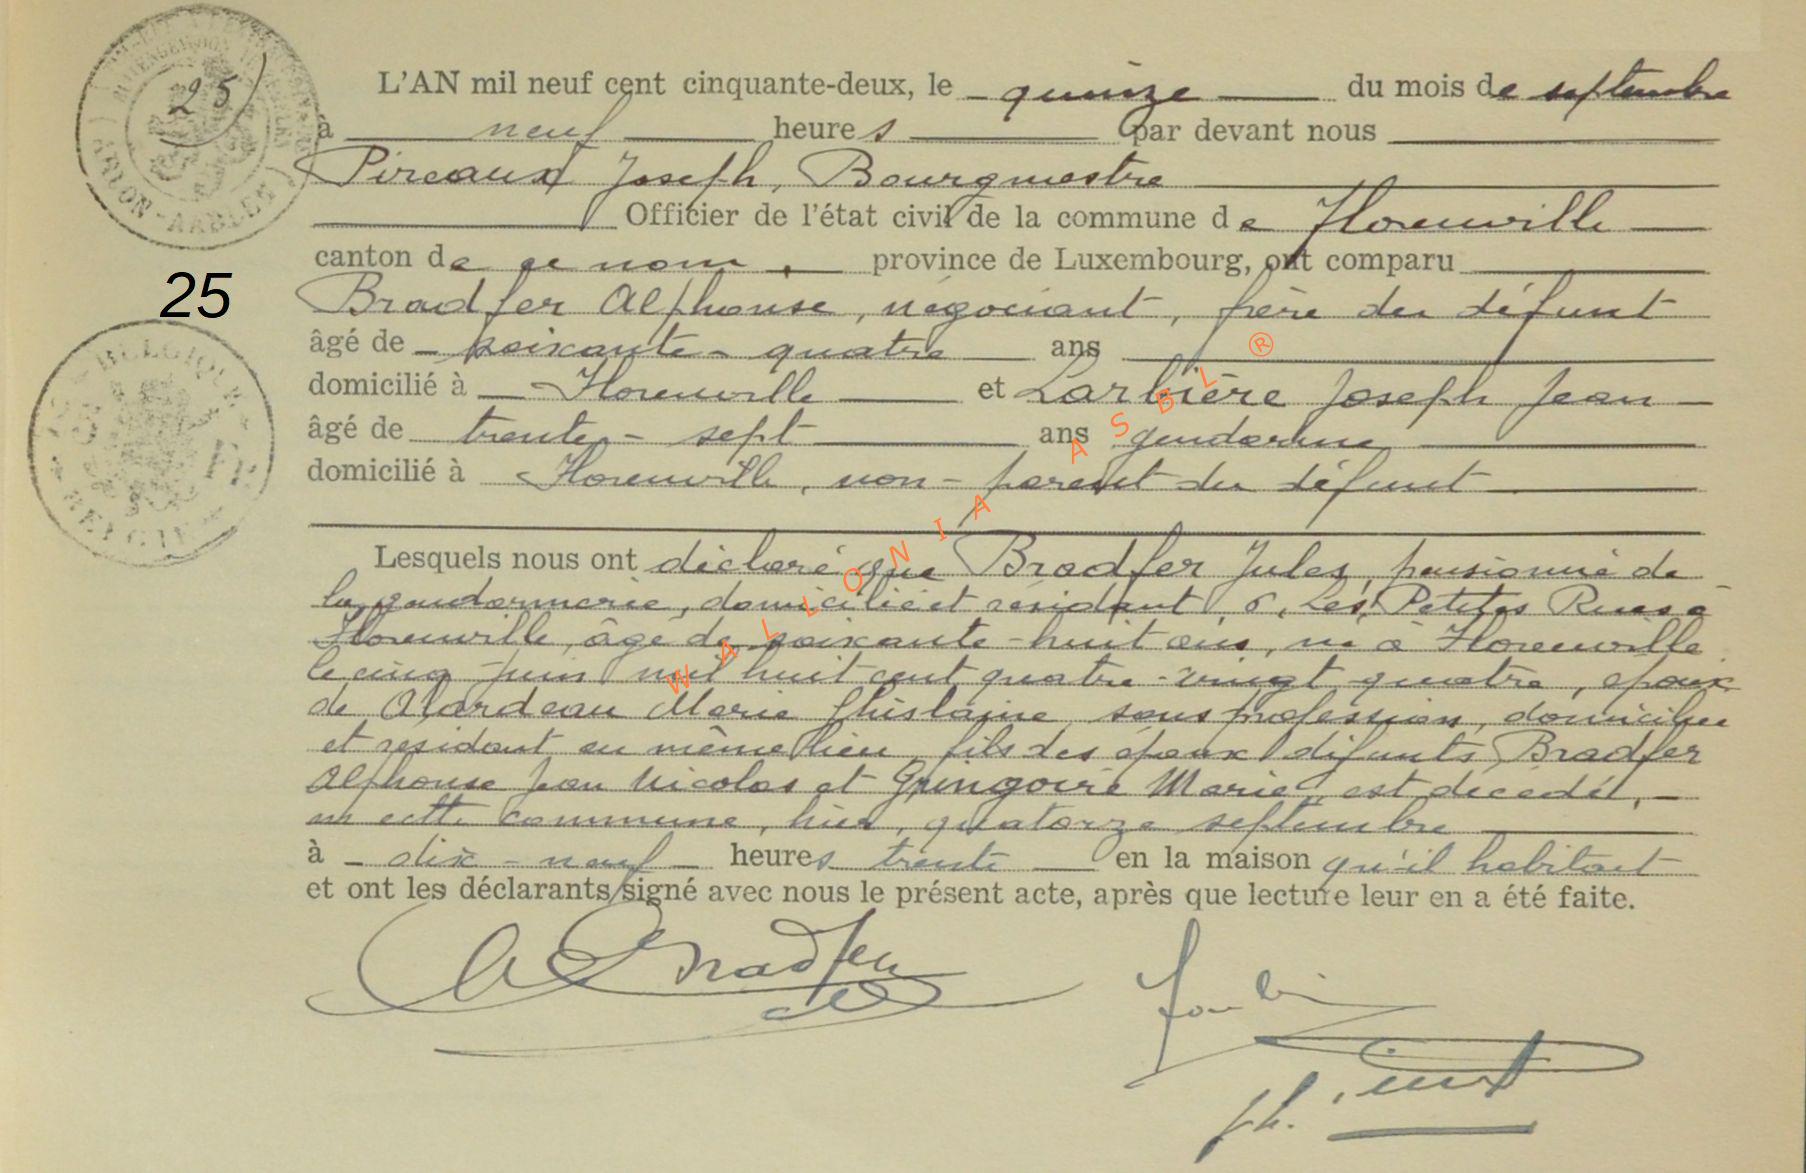 25)
25
BELGIQUE
BELGIË
ARLON - AARLEN
L'AN mil neuf cent cinquante-deux, le quinze du mois de septembre
à neuf heures par devant nous
Pireaux Joseph, Bourgmestre
Officier de l'état civil de la commune de Florenville
canton de ce nom, province de Luxembourg, ont comparu
Bradfer Alphonse, négociant, frère du défunt
âgé de soixante-quatre ans
domicilié à Florenville et Larbière Joseph Jean
âgé de trente-sept ans gendarme
domicilié à Florenville, non-parent du défunt
Lesquels nous ont déclaré que Bradfer Jules, pensionné de
la gendarmerie, domicilié et résidant 6, Les Petites Rues à
Florenville, âgé de soixante-huit ans, né à Florenville
le cinq juin mil huit cent quatre-vingt quatre, époux
de Alardeau Marie Ghislaine, sans profession, domiciliée
et résidant au même lieu, fils des époux défunts Bradfer
Alphonse Jean Nicolas et Gringoire Marie, est décédé,
en cette commune, hier, quatorze septembre
à dix-neuf heures trente en la maison qu'il habitait
et ont les déclarants signé avec nous le présent acte, après que lecture leur en a été faite.
A Bradfer
WALLONIA ASBL ®